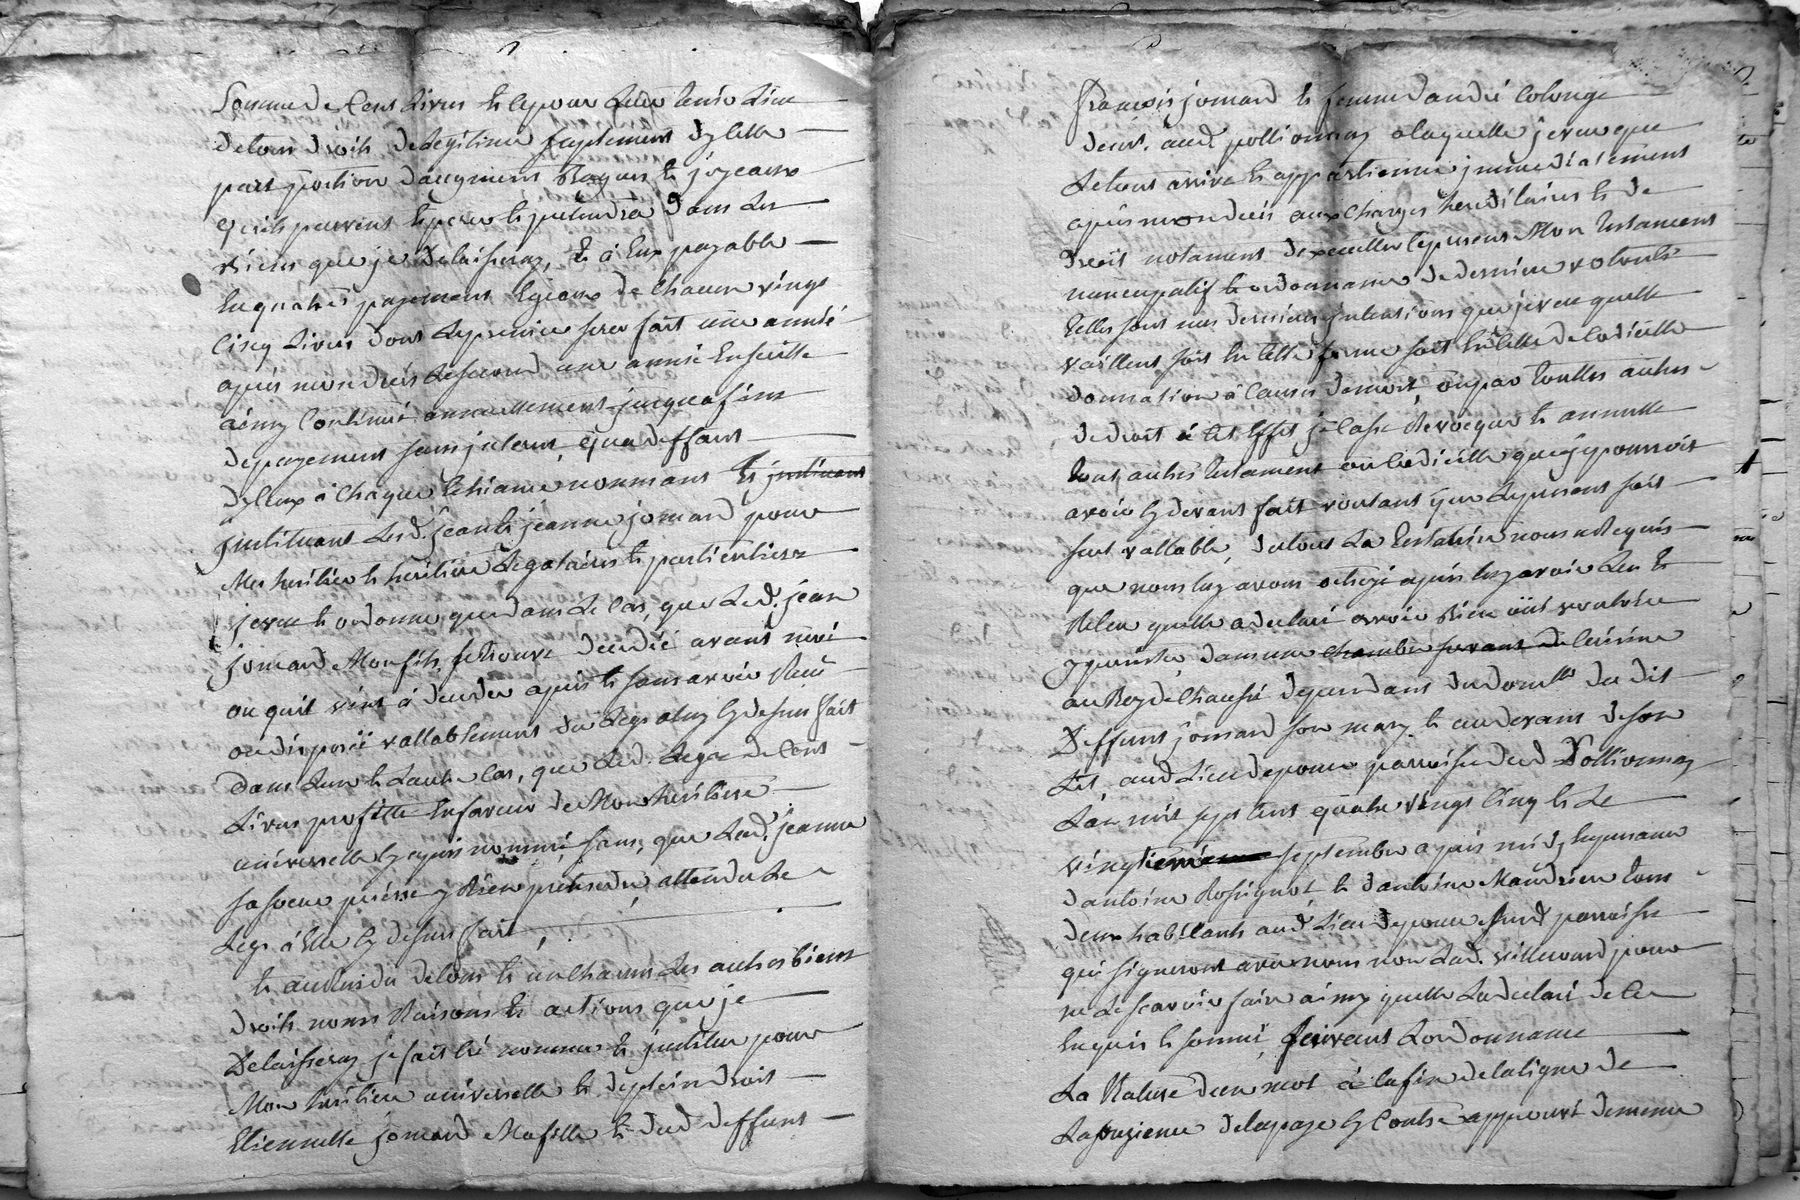 Somme de Cent Livres et ce pour Leur tenir Lieu
de tous droits de Legitime suplement d'ycelle
part portion d'augment Bagues et joyeaux
qu'ils peuvent esperer et pretendre dans Les
Biens que je Delaisseray, et à Eux payable
En quatre payement Egeaux de Chacun vingt
Cinq Livres dont Le premier sera fait une année
après mon decès Le second une année Ensuitte
ainsy Continué annuellement jusqu'a fin
de payement sans interest, qu'a deffaut
d'yceux à Chaque Echeance nommant Et instituant
jnstituant Lesd. jean Et jeanne jomard pour
Mes heritier et heritiere Legataires et particuliers
je veux et ordonne que dans Le Cas, que Led. jean
jomard Mon fils se trouve decedé avant moi
ou qu'il vint à deceder après et sans avoir Reçu
ou disposé vallablement du Legs a luy Cy dessus fait
dans L'un et L'autre Cas, que Led. Legs de Cent
Livres profitte En faveur de Mon heritiere
universelle Cy après nommée, sans, que Lad. jeanne
sa soeur puisse y Rien pretendre, attendu Le
Legs à Elle Cy dessus fait,
Et au Residu de tous et un Chacuns Les autres biens
droits noms Raisons et actions que je
Delaisseray je fait Cré nomme et institue pour
Mon heritiere universelle et de plein droit
Etiennette jomard Ma fille et dud deffunt
François jomard et femme d'andré Colonge
dem.t aud pollionnay a laquelle je veux que
Le tout arrive et appartienne immediatement
après mon decès aux Charges hereditaires et de
droit notament d'executer Le present Mon testament
nuncupatif et ordonnance de derniere volonté
telles sont mes dernieres intentions que je veux quelle
vaillent soit En telle forme soit En telle de Codicille
donnation à Cause de mort, ou par touttes autres
de droit à Cet Effet je Casse Revoque et annulle
tout autres testament ou Codicille que j'y pourrois
avoir Cy devant fait voulant que Le present soit
seul vallable, de tout La testatrice nous a Requis
que nous luy avons octroyé après luy avoir Leu et
Releu quelle a declaré avoir Bien oüi
y persister dans une chambre servant de Cuisine
au Rez de Chaussé dependant du domlle du dit
Deffunt jomard son mary et au devant de son
Lit, aud Lieu de poüe parroisse dud Pollionnay
L'an mil sept Cent quatre vingt Cinq et Le
vingtieme septembre après midy En presence
d'antoine Rossignol, et d'antoine Mandrieu tous
deux habitants aud. Lieu de poüe Susd. parroisse
qui signeront avec nous non Lad. villemard pour
ne Le scavoir faire ainsy quelle La declaré de Ce
Enquis et sommé, suivant L'ordonnance
La Rature d'un mot à la fin de la ligne de
La onzieme de la page Cy Contre approuvé de meme